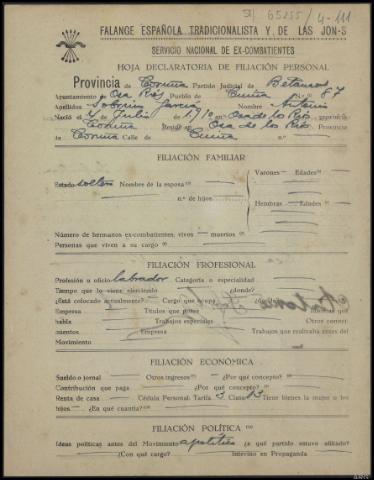 65255 / 4-111
FALANGE ESPAÑOLA TRADICIONALISTA Y DE LAS JON-S
SERVICIO NACIONAL DE EX-COMBATIENTES
HOJA DECLARATORIA DE FILIACIÓN PERSONAL
Provincia de Coruña Partido Judicial de Betanzos
Ayuntamiento de Oza Ríos Pueblo de Cuiña n.º 87
Apellidos García Nombre Antonio
Nació el 4 Julio de 1910 en Oza de los Ríos provincia
Coruña Reside en Oza de los Ríos Provincia
de Coruña Calle de Cuiña
FILIACIÓN FAMILIAR
Estado soltero Nombre de la esposa
Varones Edades
n.º de hijos
Hembras Edades
Número de hermanos ex-combatientes, vivos muertos
Personas que viven a su cargo
FILIACIÓN PROFESIONAL
Profesión u oficio labrador Categoría o especialidad
Tiempo que lo viene ejerciendo ¿donde?
¿Está colocado actualmente? Cargo que ocupa
Empresa Títulos que posee Idiomas que
habla Trabajos especiales Otros conoci-
mientos Empresa Trabajos que realizaba antes del
Movimiento
FILIACIÓN ECONÓMICA
Sueldo o jornal Otros ingresos ¿Por qué concepto?
Contribución que paga ¿Por qué concepto?
Renta de casa Cédula Personal. Tarifa 3 Clase 13 Tiene bienes la mujer o los
hijos ¿En qué cuantía?
FILIACIÓN POLÍTICA
Ideas políticas antes del Movimiento apolítico ¿a qué partido estuvo afiliado?
¿Con qué cargo? Intervino en Propaganda